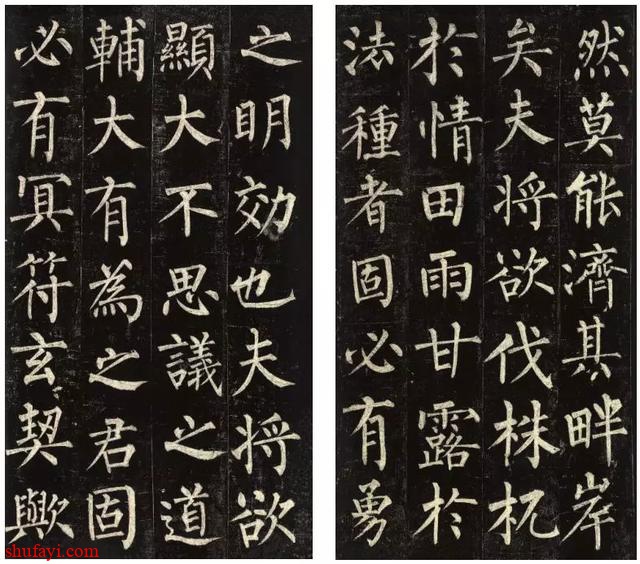 然莫能濟其畔岸
矣夫将欲伐株杌
於情田雨甘露於
法種者固必有勇
之明効也夫将欲
顯大不思議之道
輔大有為之君固
必有冥符玄契歟
shufayi.com